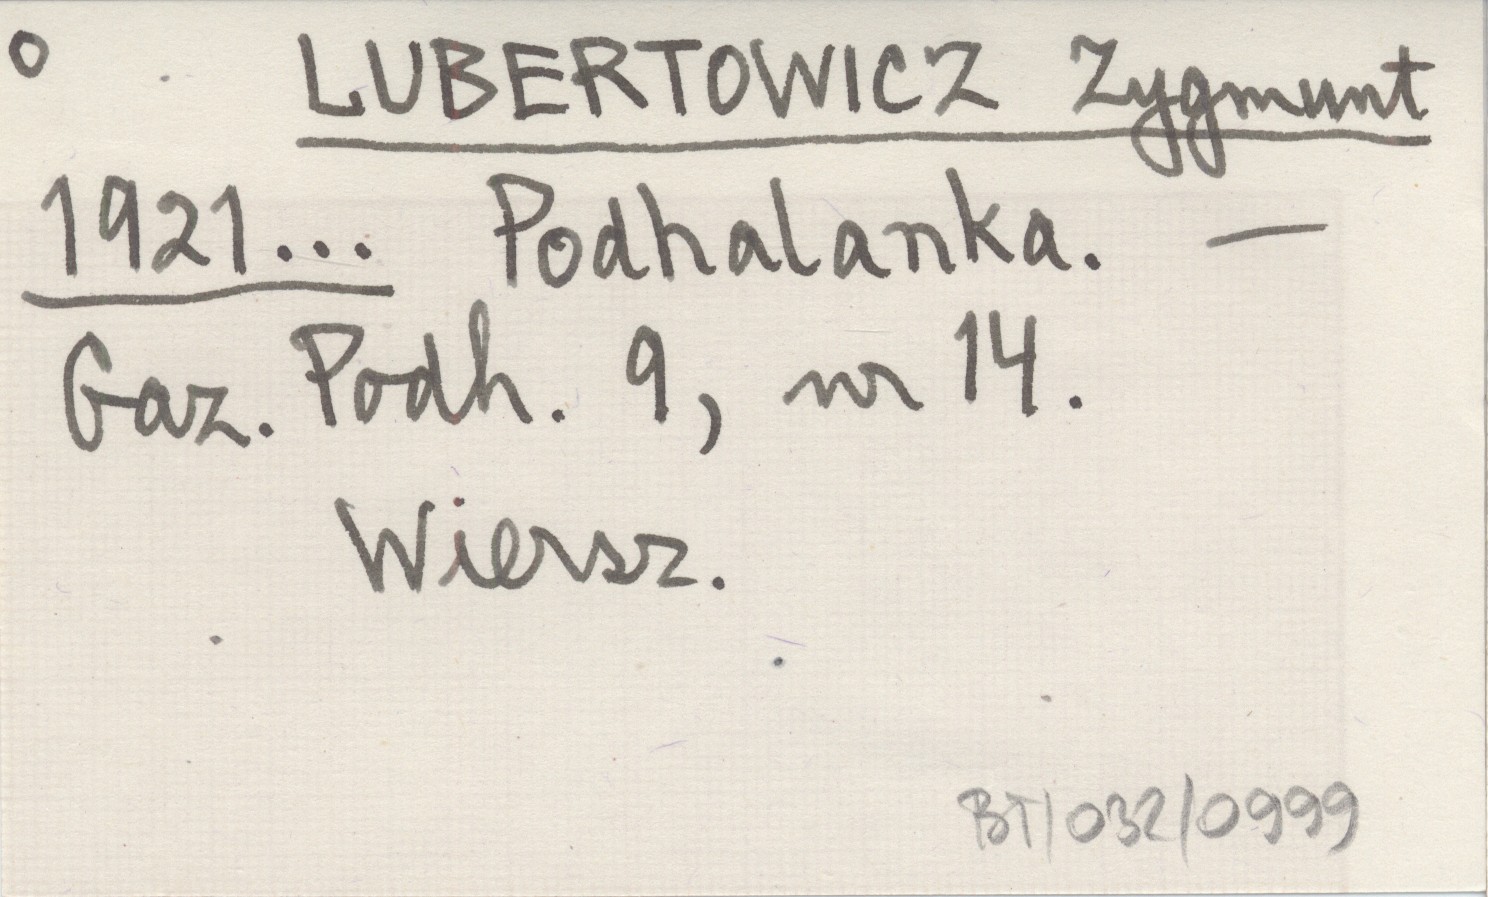 o LUBERTOWICZ Zygmunt
1921... Podhalanka. —
Gaz. Podh. 9, nr 14.
Wiersz.
BT/032/0999